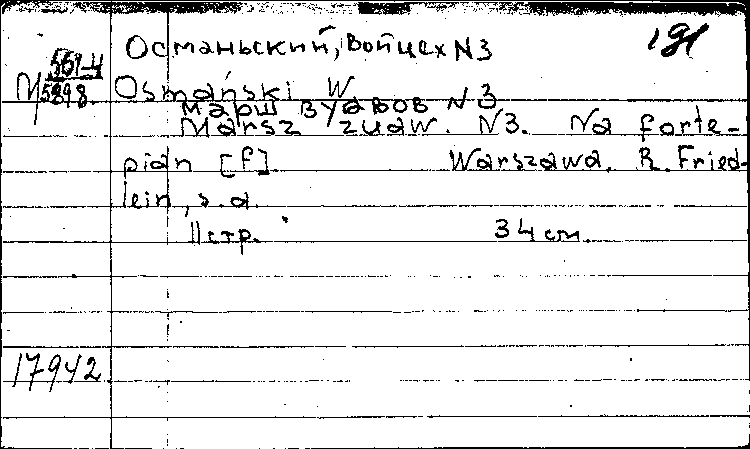 Османьский, Войцех N3
561-4
N 5898. Osmański W
Марш вуавов N 3
Marsz zuaw. N3. Na forte-
pian [f] Warszawa, R. Fried-
lein, s.a.
11 стр. 34 см.
17942